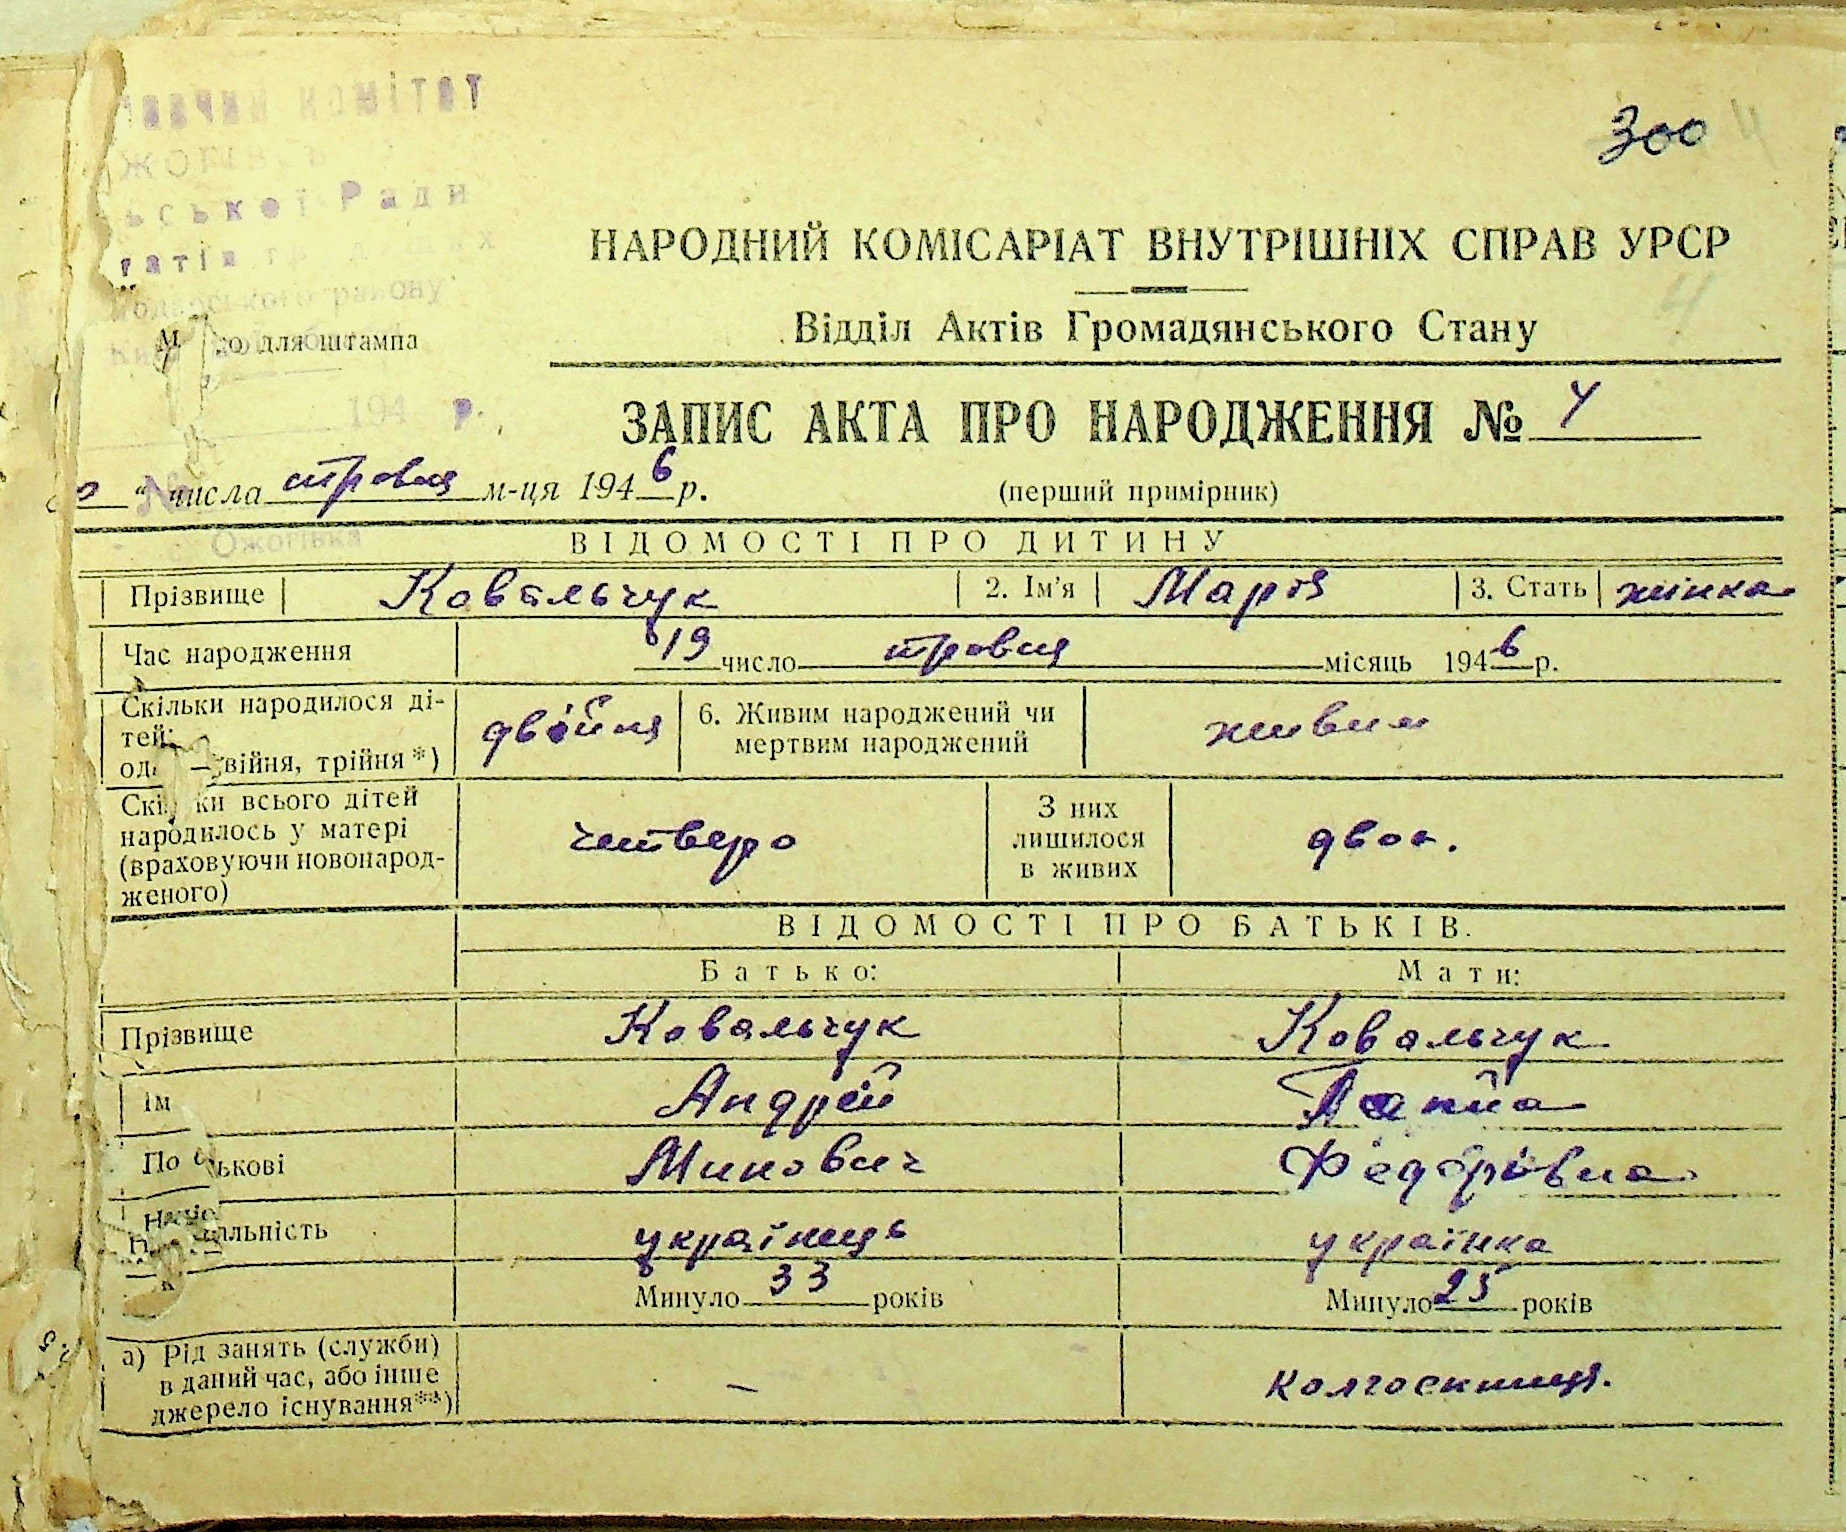 комітет
ької Ради
району
300
НАРОДНИЙ КОМІСАРІАТ ВНУТРІШНІХ СПРАВ УРСР
Відділ Актів Громадянського Стану
для штампа
194 р.
ЗАПИС АКТА ПРО НАРОДЖЕННЯ № 4
числа травня м-ця 1946 р.
(перший примірник)
Ожогівка
ВІДОМОСТІ ПРО ДИТИНУ
Прізвище Ковальчук 2. Ім'я Марія 3. Стать жінка
Час народження 19 число травня місяць 1946 р.
Скільки народилося ді-
тей:
війня, трійня *)
двойня
6. Живим народжений чи
мертвим народжений
живим
ки всього дітей
народилось у матері
(враховуючи новонарод-
женого)
четверо
З них
лишилося
в живих
двоє.
ВІДОМОСТІ ПРО БАТЬКІВ.
Батько: Мати:
Прізвище Ковальчук Ковальчук
Ім Андрій
По ькові Минович Федорівна
альність українець українка
Минуло 33 років Минуло 25 років
а) Рід занять (служби)
в даний час, або інше
джерело існування**)
— колгоспниця.